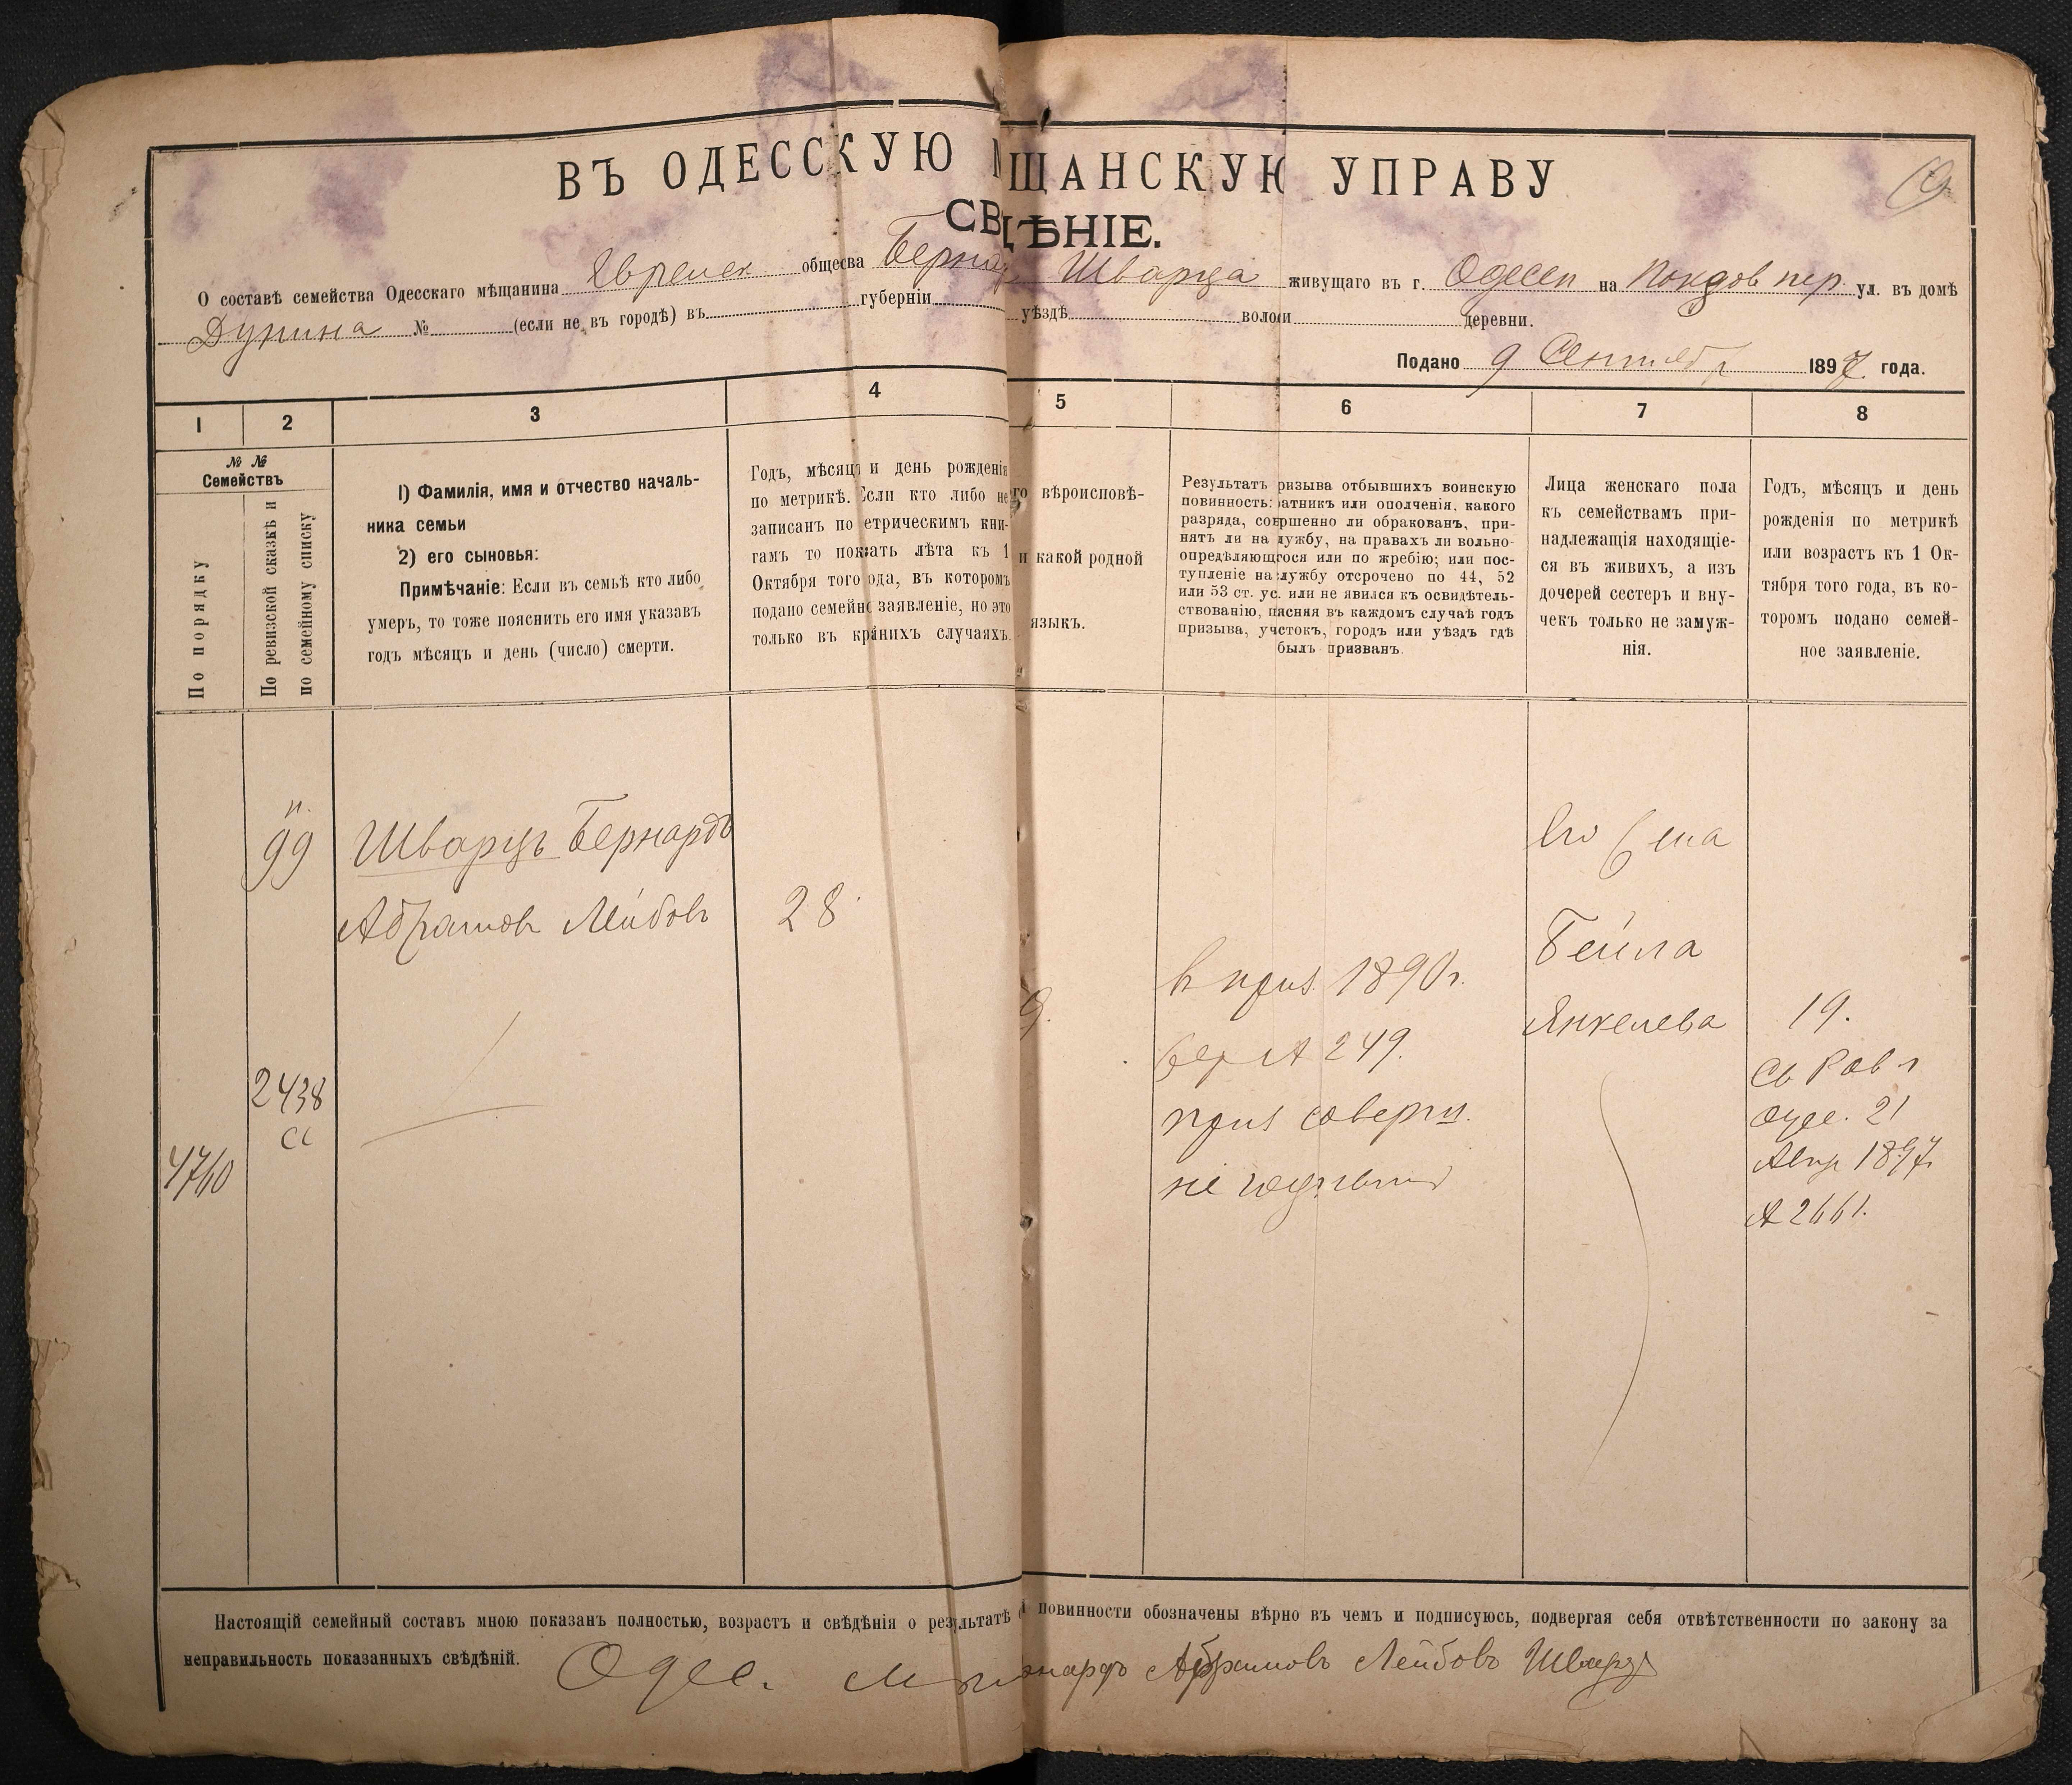 ВЪ ОДЕССКУЮ МЩАНСКУЮ УПРАВУ
СВДѢНІЕ.
О составѣ семейства Одесскаго мѣщанина Еврейск общесва Берна Шварца живущаго въ г. Одессѣ на пер. ул. въ домѣ
Дунина № (если не въ городѣ) въ губерніи уѣздѣ волоси деревни.
Подано 9 Сентябр 1897 года.
1 2 3 4 5 6 7 8
№ №
Семействъ
По порядку
По ревизской сказкѣ и
по семейному списку
1) Фамилія, имя и отчество началь-
ника семьи
2) его сыновья:
Примѣчаніе: Если въ семьѣ кто либо
умеръ, то тоже пояснить его имя указавъ
годъ мѣсяцъ и день (число) смерти.
Годъ, мѣсяцъ и день рожденія
по метрикѣ. Если кто либо не
записанъ по етрическимъ кни-
гамъ то покзать лѣта къ 1
Октября того ода, въ которомъ
подано семейно заявленіе, но это
только въ краниxъ случаяхъ.
го вѣроисповѣ-
и какой родной
языкъ.
Результатъ ризыва отбывшихъ воинскую
повинность: ратникъ или ополченія, какого
разряда, совршенно ли обракованъ, при-
нятъ ли на лужбу, на правахъ ли вольно-
опредѣляющгося или по жребію; или пос-
тупленіе на службу отсрочено по 44, 52
или 53 ст. ус. или не явился къ освидѣтель-
ствованію, пясняя въ каждомъ случаѣ годъ
призыва, учстокъ, городъ или уѣздъ гдѣ
былъ призванъ.
Лица женскаго пола
къ семействамъ при-
надлежащія находящіе-
ся въ живихъ, а изъ
дочерей сестеръ и вну-
чекъ только не замуж-
нія.
Годъ, мѣсяцъ и день
рожденія по метрикѣ
или возрастъ къ 1 Ок-
тября того года, въ ко-
торомъ подано семей-
ное заявленіе.
н.
99 Шварцъ Бернардъ
Абрамовъ Лейбовъ 28
2438
сс
4760
в приз. 1890 г.
№ 249.
приз соверш.
не годным
Его жена
Бейла
Янкелева 19.
Св Рав г
Одес. 21
1897
№ 2661.
Настоящій семейный составъ мною показанъ полностью, возрастъ и свѣдѣнія о результатѣ повинности обозначены вѣрно въ чемъ и подписуюсь, подвергая себя отвѣтственности по закону за
неправильность показанныхъ свѣдѣній. Одес. нардъ Абрамовъ Лейбовъ Шварцъ